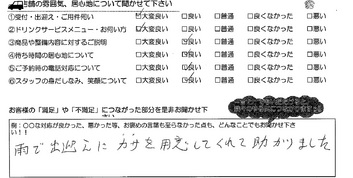 店舗の雰囲気、居心地について聞かせて下さい
①受付・出迎え・ご用件伺い □大変良い □良い □普通 □良くなかった □悪い
②ドリンクサービスメニュー・お伺い方 □大変良い □良い □普通 □良くなかった □悪い
③商品や整備内容に対するご説明 □大変良い □良い □普通 □良くなかった □悪い
④待ち時間の居心地について □大変良い □良い □普通 □良くなかった □悪い
⑤ご予約時の電話対応について □大変良い □良い □普通 □良くなかった □悪い
⑥スタッフの身だしなみ、笑顔について □大変良い □良い □普通 □良くなかった □悪い
お客様の「満足」や「不満足」につながった部分を是非お聞かせ下さい
例：〇〇な対応が良かった、悪かった等、お褒めの言葉も至らなかった点も、どんなことでもお聞かせ下さい！！
雨で出迎えにカサを用意してくれて助かりました